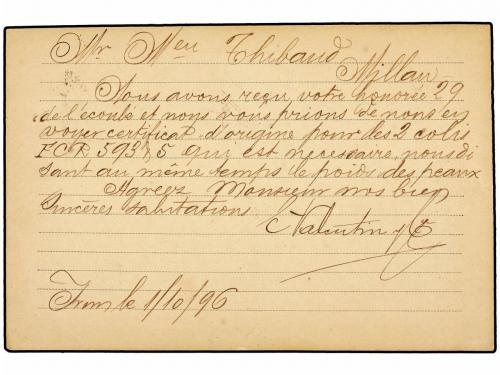 Mr Meu Thibaud
Millau
Nous avons reçu votre honorée 29
de l'écoulé et nous vous prions de nous en
voyer certificat d'origine pour les 2 colis
FCT 593/5 qui est necessaire, nous di
sant au même temps de poids des peaux
Agreez Monsieur nos bien
Sincères salutations
Valentin y Cª
Irun le 1/10/96